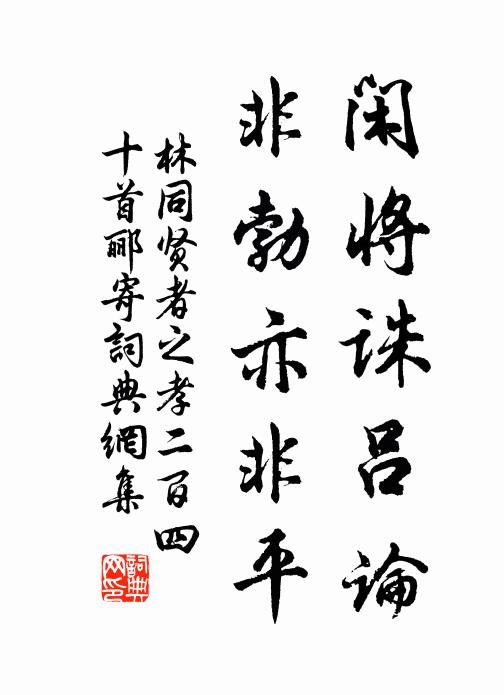 闲将诛吕论
非勃亦非平
林同贤者之孝二百四
十首郦寄詞典網集
詞典网印